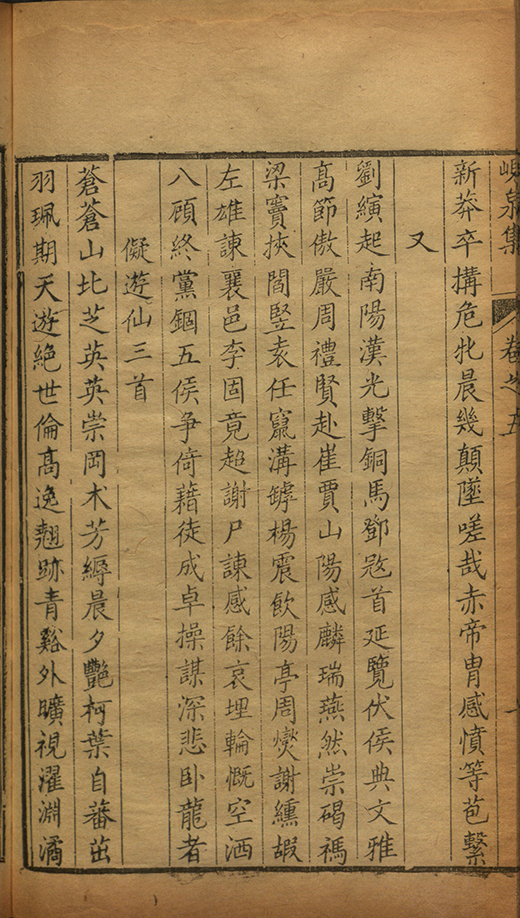 峴泉集 卷之五 一
新莽卒搆危牝晨幾顛墜嗟哉赤帝胄感憤等苞繫
又
劉縯起南陽漢光擊銅馬鄧㓂首延覽伏侯典文雅
高節傲嚴周禮賢赴崔賈山陽感麟瑞燕然崇碣禡
梁竇挾閻豎袁任竄溝罅楊震飲陽亭周爕謝纁嘏
左雄諫襄邑李固竟超謝尸諫感餘哀埋輪慨空洒
八顧終黨錮五侯争倚藉徒成卓操謀深悲臥龍者
儗遊仙三首
蒼蒼山北芝英英崇岡木芳縟晨夕艷柯葉自蕃茁
羽珮期天遊絕世倫高逸翹跡青谿外曠視濯淵潏